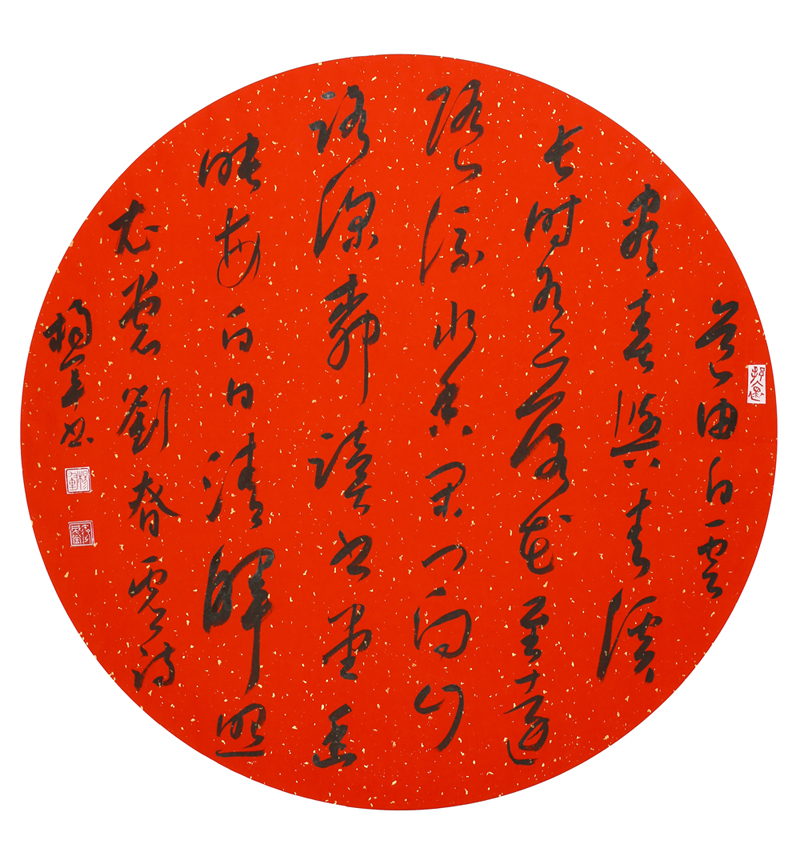 道由白雲
盡春與青溪
長時有落花至遠
隨流水香閑門向山
路深柳讀書堂幽
映每白日清輝照
衣裳劉眘虛詩
書